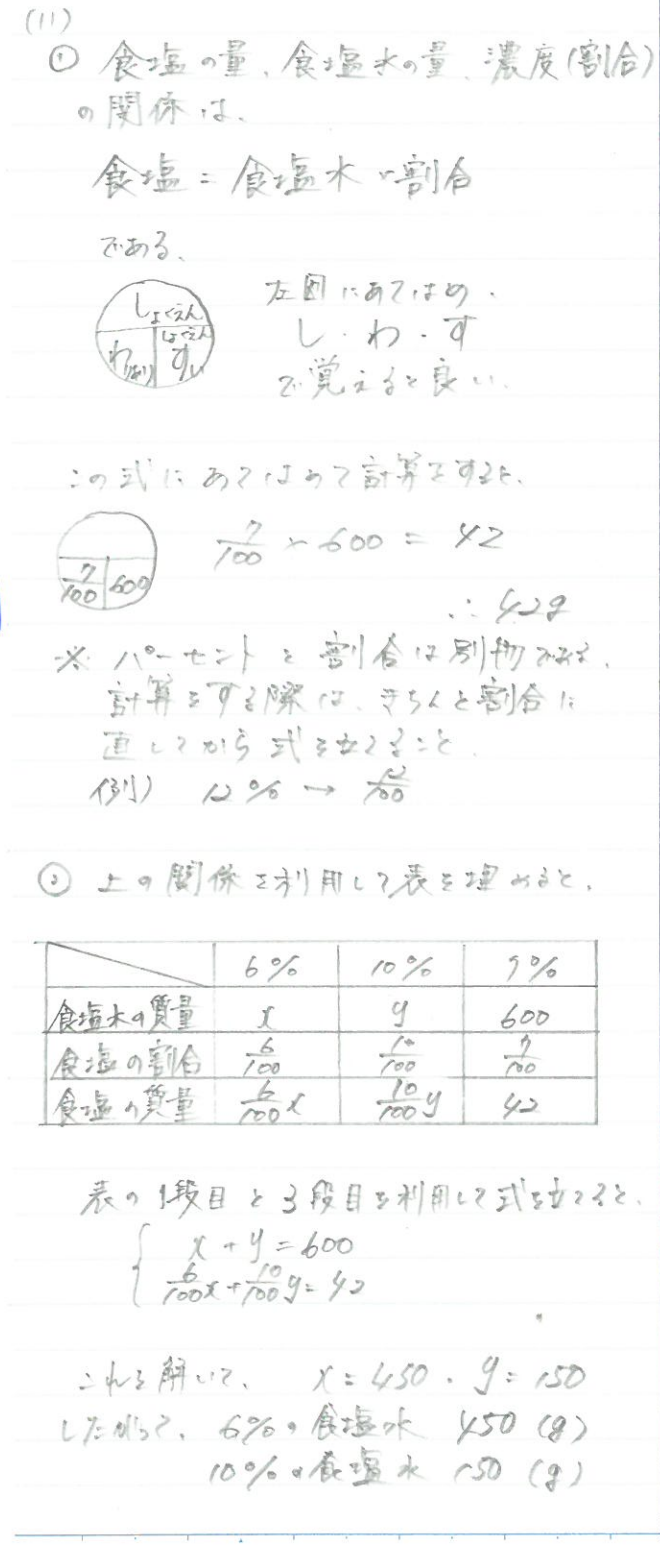 (11)
① 食塩の量、食塩水の量、濃度(割合)
の関係は、
食塩 = 食塩水 × 割合
である。
しょくえん
わ(りあい)
しょくえん
すい
左図にあてはめ、
し・わ・す
で覚えると良い。
この式にあてはめて計算をすると、
7/100 600
7/100 × 600 = 42
∴ 42g
※ パーセントと割合は別物である。
計算をする際は、きちんと割合に
直してから式を立てること。
(例) 12% → 12/100
② 上の関係を利用して表を埋めると、
6% 10% 7%
食塩水の質量 x y 600
食塩の割合 6/100 10/100 7/100
食塩の質量 6/100x 10/100y 42
表の1段目と3段目を利用して式を立てると、
x + y = 600
6/100x + 10/100y = 42
これを解いて、 x = 450 、 y = 150
したがって、 6%の食塩水 450 (g)
10%の食塩水 150 (g)